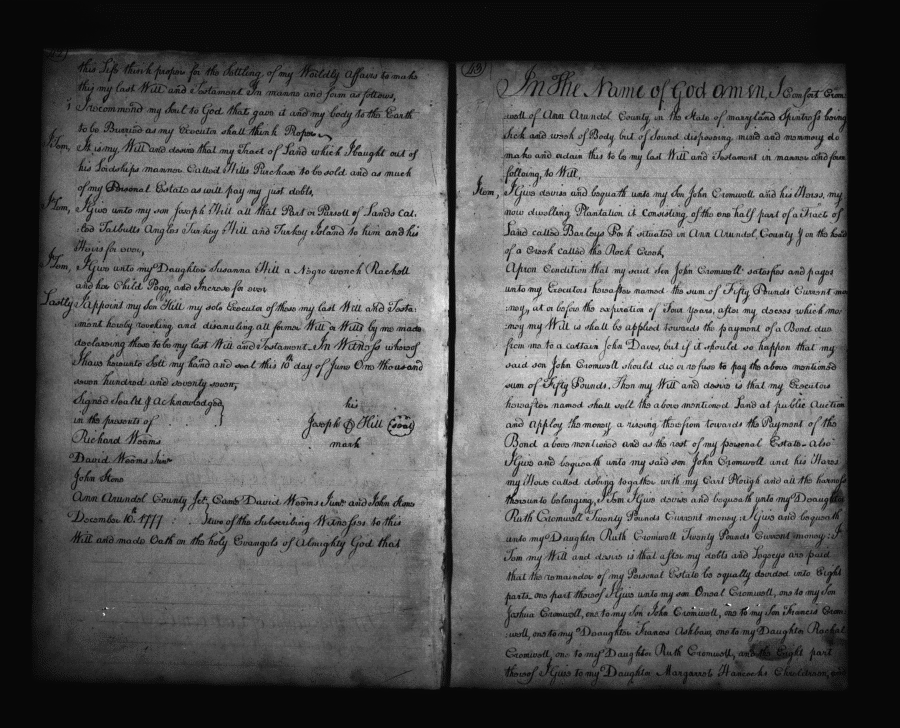 this Life think proper for the Settling, of my Worldly Affairs to make
this my last Will and Testament In manner and form as follows,
I recommend my Soul to God that gave it and my body to the Earth
to be Burried as my Executor shall think Proper
Item, It is my Will and desire that my Tract of Land which I bought out of
his Lordships mannor Called Hills Purchase to be sold and as much
of my Personal Estate as will pay my just debts,
Item, I Give unto my son Joseph Hill all that Part or Parsell of Lands Cal
:led Talbutts Angles Turkey Hill and Turkey Island to him and his
Heirs for ever,
Item, I Give unto my Daughter Susanna Hill a Negro wench Rachell
and her Child Pegg, and Increse for ever
Lastly I appoint my son Hill my sole Executor of these my last Will and Testa:
ment hereby revoking, and disanuling all former Will or Wills by me made
declareing these to be my last Will and Testament. In Witness whereof
I have hereunto Sett my hand and seal this 10th day of June One thousand
seven hundred and seventy seven,
Signed Seald & Acknowledged
in the presents of
his
Joseph Hill (seal)
mark
Richard Weems
David Weems Junr
John
Ann Arundel County Sct, Came David Weems Junr and John
December 10th 1777 : two of the Subscribing Witnesses to this
Will and made Oath on the holy Evangels of Almighty God that
43
In The Name of God amen, I Comfort Crom
well of Ann Arundel County, in the State of maryland Spinstress being
Sick and weak of Body but of sound disposeing mind and memmory do
make and ordain this to be my last Will and Testament in manner and form
folloing, to Will,
Item, I Give devise and bequeath unto my Son John Cromwell and his Heirs, my
now dwelling Plantation it Consisting of the one half part of a Tract of
Land called Barleys Pork situated in Ann Arundel, County on the head
of a Creek called the Rock Creek,
Apron Condition that my said son John Cromwell satisfies and payes
unto my Executors hereafter named the sum of Fifty Pounds Current mo
:ney, at or before the expiration of Four years, after my decess which mo:
ney my Will is shall be applied towards the payment of a Bond due
from me to a certain John Daves, but if it should so happen that my
said son John Cromwell should die or refuse to pay the above mentioned
sum of Fifty Pounds. Then my Will and desire is that my Executors
hereafter named shall sell the above mentioned Land at public Auction
and Apploy the money a riseing therefrom towards the Payment of the
Bond above mentioned and as the rest of my personal Estate Also
I Give and bequeath unto my said son John Cromwell and his Haires
my Horse called together with my Cart Plough and all the harness
thereunto belonging, Item I Give devise and bequeath unto my Daughter
Ruth Cromwell Twenty Pounds Current money: I Give and bequeath
unto my Daughter Ruth Cromwell Twenty Pounds Current money: I
Tom my Will and desire is that after my debts and Legacys are paid
that the remainder of my Personal Estate be equally devided into Eight
parts, one part thereof I Give unto my son Oneal Cromwell, one to my Son
Joshua Cromwell, one to my Son John Cromwell, one to my Son Francis Crom
:well, one to my Daughter Frances Ashbaw, one to my Daughter Rachel
Cromwell, one to my Daughter Ruth Cromwell, and the Eight part
thereof I Give to my Daughter Margarret Hancocks Chreldren,